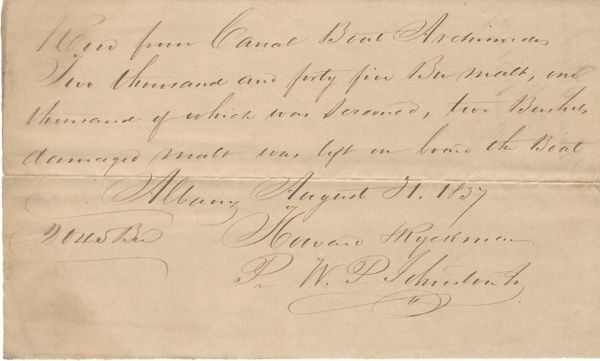 Recd from Canal Boat Archimedes
Two thousand and forty five Bu malt, one
thousand of which was screened, two Bushels
damaged malt was left on board the Boat
Albany August 31. 1837
2045 Bu Howard & Ryckman
Pr W. P.